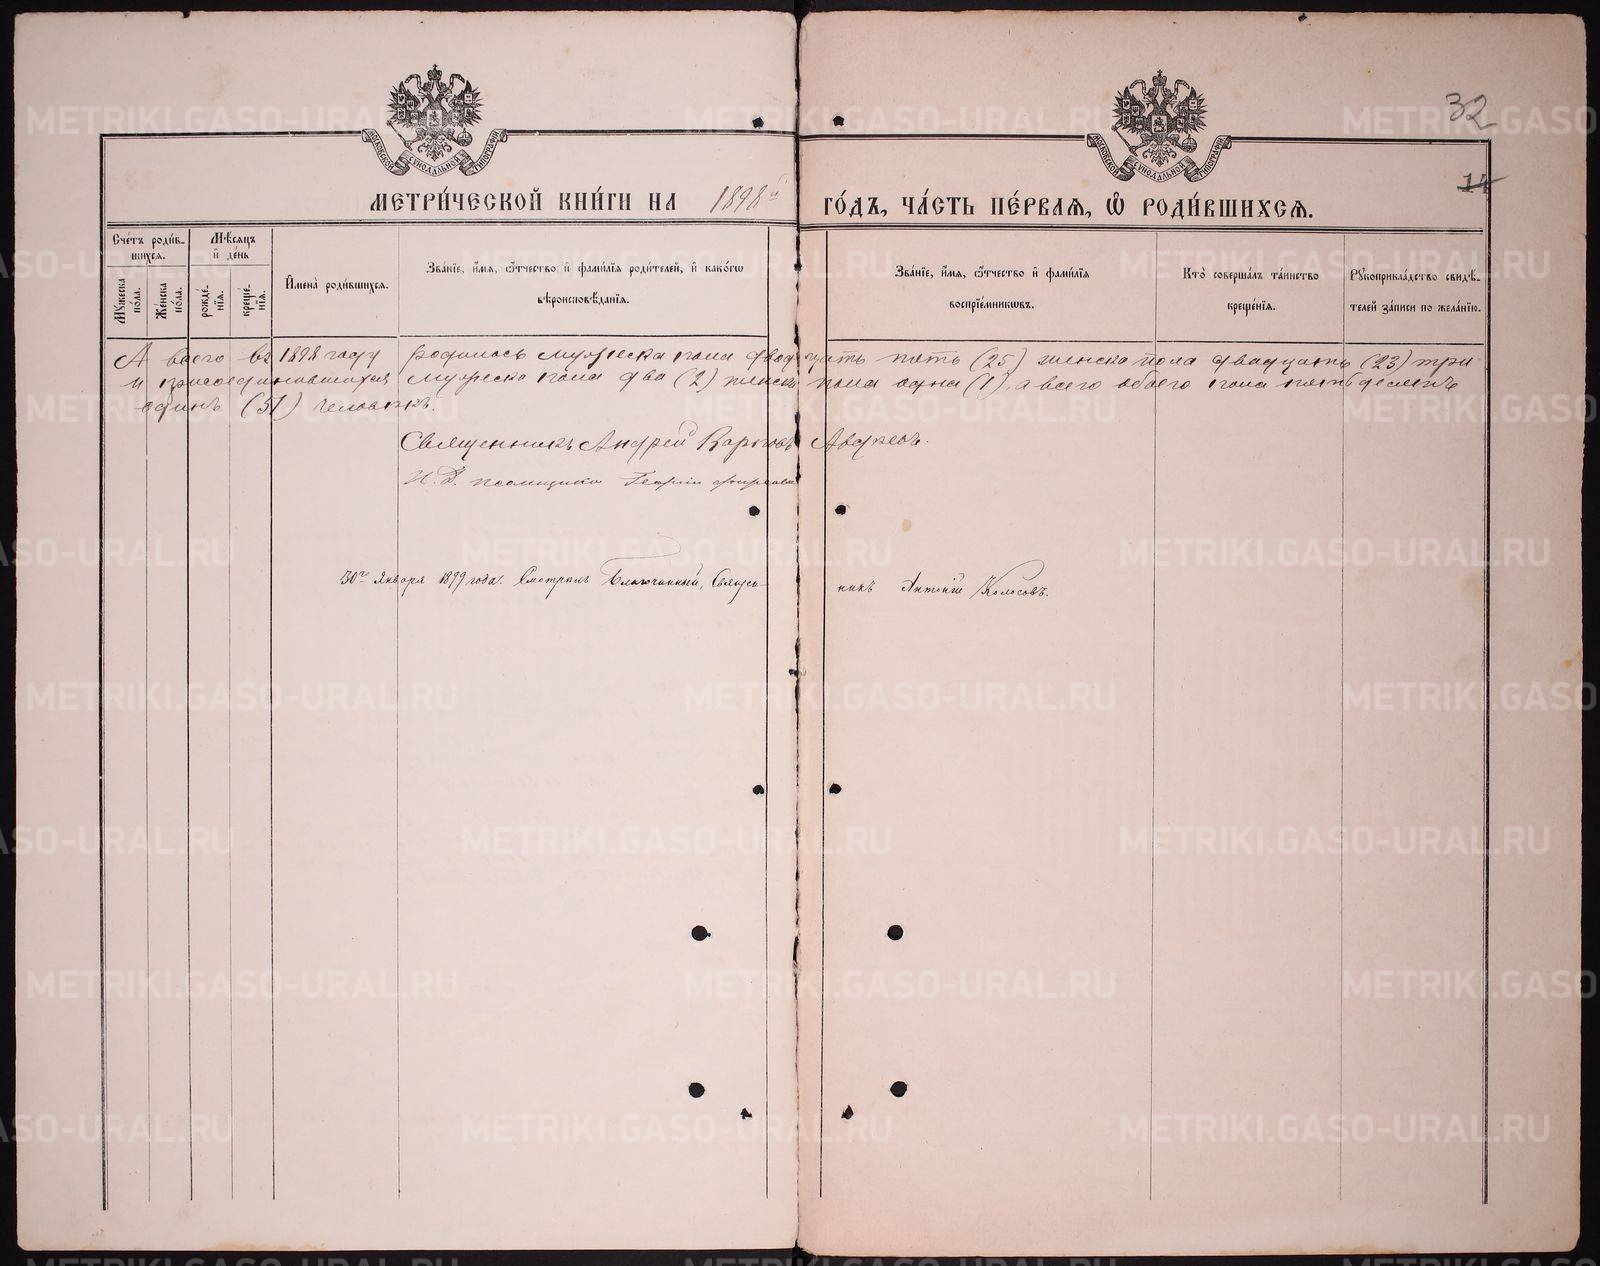 32
14
МОСКОВСКОЙ СѴНОДАЛЬНОЙ ТИПОГРАФІИ
МОСКОВСКОЙ СѴНОДАЛЬНОЙ ТИПОГРАФІИ
МЕТРИ́ЧЕСКОЙ КНИ́ГИ НА 1898й ГО́ДЪ, ЧА́СТЬ ПЕ́РВАЯ, Ѡ РОДИ́ВШИХСЯ.
Сче́тъ роди́в-
шихся.
Мꙋ́жеска по́ла.
Же́нска по́ла.
Мѣ́сяцъ и҆ де́нь
рожде́-нїѧ.
креще́-нїѧ.
И҆мена̀ роди́вшихся.
Зва́нїе, и҆́мѧ, ѻ҆́тчество и҆ фами́лїѧ роди́телей, и҆ како́гѡ
вѣроисповѣ́данїѧ.
Зва́нїе, и҆́мѧ, ѻ҆́тчество и҆ фами́лїѧ
воспрїе́мникѡвъ.
Кто̀ соверша́лъ та́инство
креще́нїѧ.
Рꙋкоприкла́дство свидѣ́-
телей за́писи по жела́нїю.
А всего въ 1898 году родилось мужеска пола двадцать пять (25) женска пола двадцать (23) три
и присоединившихся мужеска пола два (2) женска пола одна (1), а всего обоего пола пятьдесятъ
одинъ (51) человѣкъ.
Священникъ Андрей
И. Д. псаломщика Георгій
30го Января 1899 года. Смотрѣлъ Благочинный, Священ-никъ Антоній Колосовъ.
METRIKI.GASO-URAL.RU